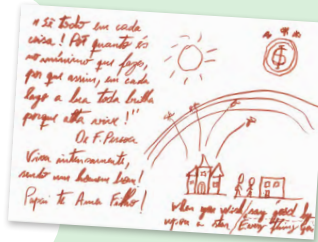 " Sê todo em cada
coisa! Põe quanto és
no mínimo que fazes,
por que assim, em cada
lago a lua toda brilha
porque alta vive!"
De F. Pessoa
Viva intensamente,
sendo um homem bom!
Papai te Ama Filho!
$
when you wish
upon a star / Every thing you